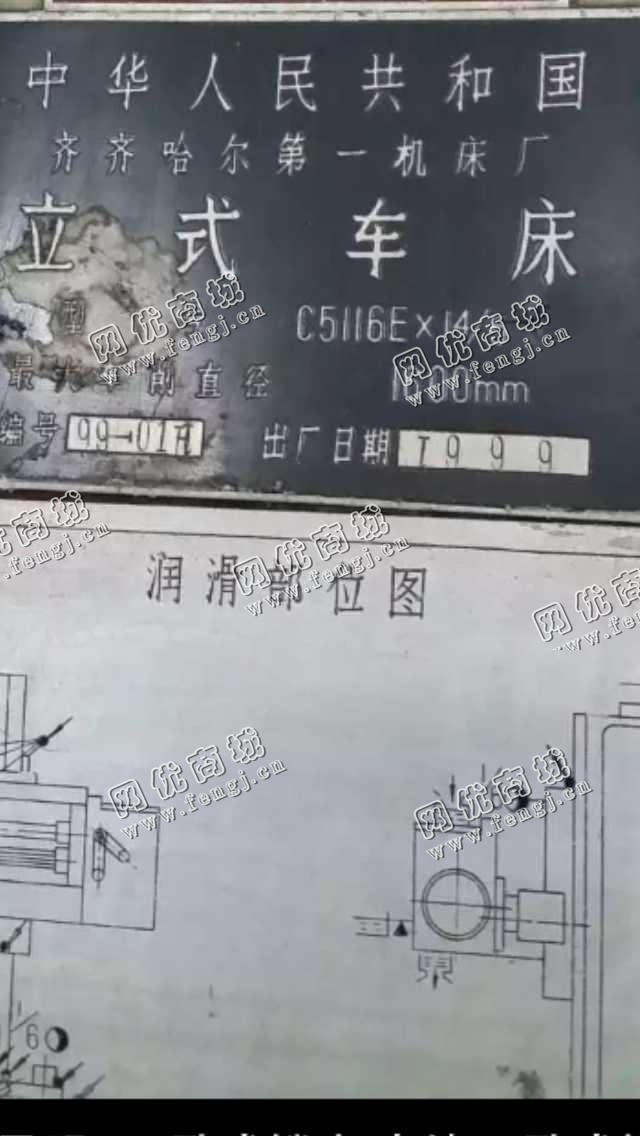 中华人民共和国
齐齐哈尔第一机床厂
立式车床
型 C5116E×14
最大车削直径 1600mm
编号 99-01A 出厂日期 1999
润滑部位图
16
网优商城
www.fengj.cn
网优商城
www.fengj.cn
网优商城
www.fengj.cn
网优商城
www.fengj.cn
网优商城
www.fengj.cn
网优商城
www.fengj.cn
网优商城
www.fengj.cn